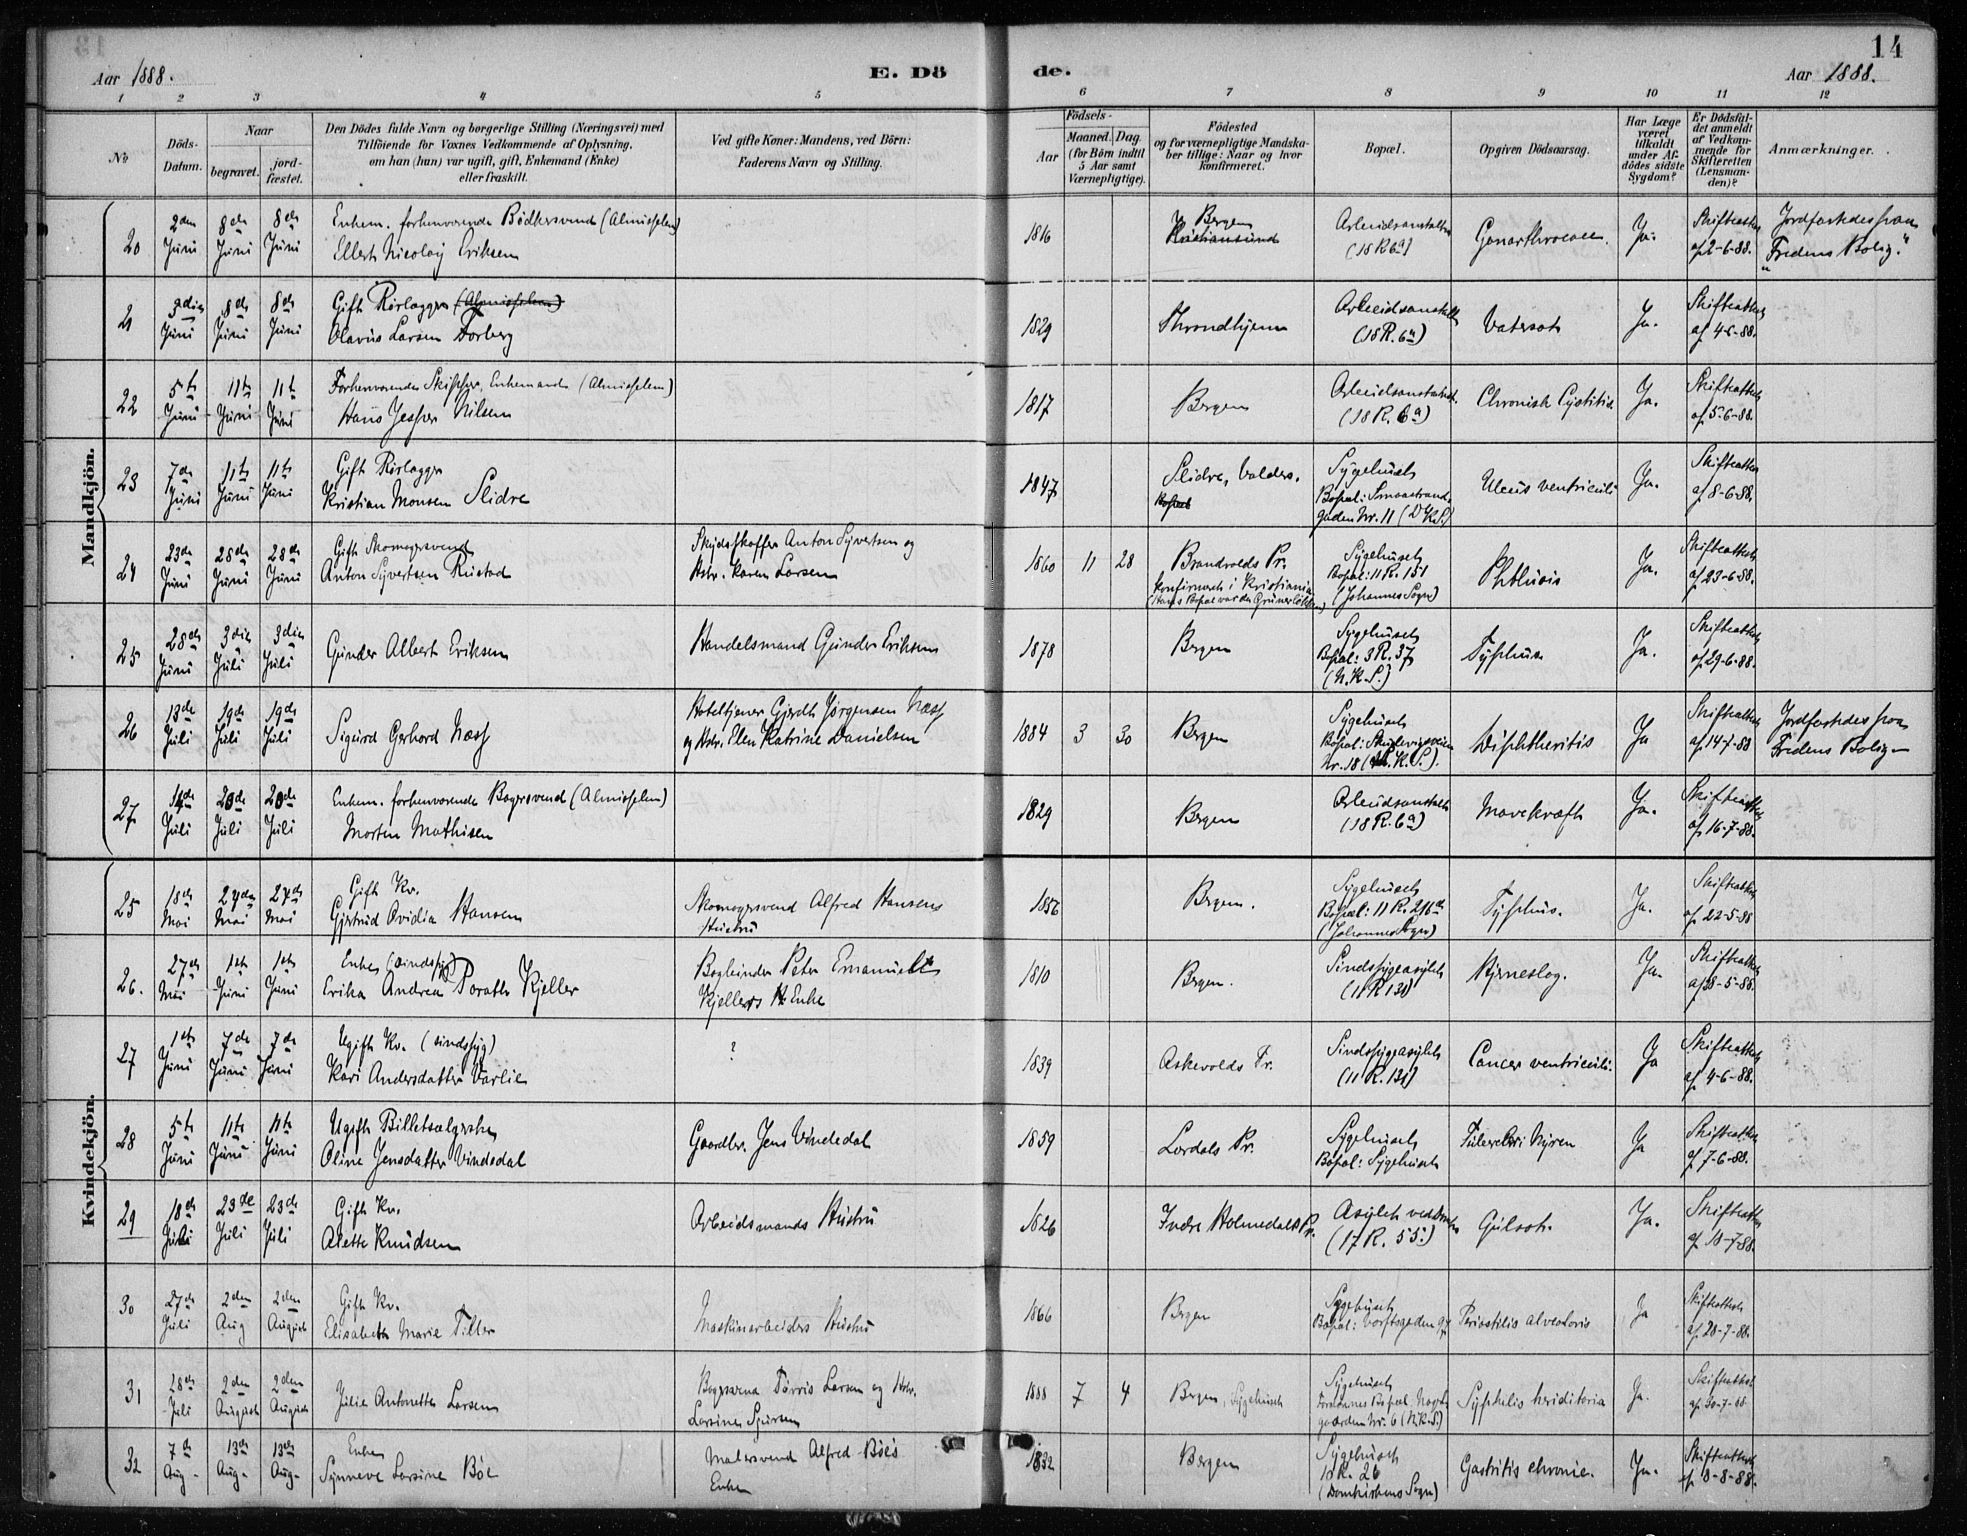 14
Aar 1888. E. Dö de. Aar 1888.
1 2 3 4 5 6 7 8 9 10 11 12
No
Döds-Datum.
Naar
begravet.
jord-fæstet.
Den Dödes fulde Navn og borgerlige Stilling (Næringsvei) med
Tilföiende for Voxnes Vedkommende af Oplysning,
om han (hun) var ugift, gift, Enkemand (Enke)
eller fraskilt.
Ved gifte Koner: Mandens, ved Börn:
Faderens Navn og Stilling.
Födsels-
Aar
Maaned. Dag.
(for Börn indtil
5 Aar samt
Værnepligtige).
Födested
og for værnepligtige Mandska-
ber tillige: Naar og hvor
konfirmeret.
Bopæl.
Opgiven Dödsaarsag.
Har Læge
været
tilkaldt
under Af-
dödes sidste
Sygdom?
Er Dödsfal-
det anmeldt
af Vedkom-
mende for
Skifteretten
(Lensman-
den)?
Anmærkninger.
Mandkjön.
20 2den Juni 8de Juni 8de Juni
Enkem. forhenværende Bödkersvend (Almisselem)
Ellert Nicolay Eriksen
1816
Bergen
Kristiansund
Arbeidsanstalten
(18 R 6a)
Gonarthrocace.
Ja.
Skifteattest
af 2-6-88.
Jordfæstedes fra
"Fredens Bolig."
21 3die Juni 8de Juni 8de Juni
Gift Rörlægger (Almisselem)
Olavus Larsen Forberg
1829
Throndhjem
Arbeidsanstalt
(18 R. 6a)
Vatersot
Ja.
Skifteattest
af 4-6-88.
22 5te Juni 11te Juni 11te Juni
Forhenværende Skipper, Enkemand (Almisselem)
Hans Jesper Nilsen
1817
Bergen
Arbeidsanstalten.
(18 R. 6a)
Chronisk Cystitis.
Ja.
Skifteattest
af 5-6-88.
23 7de Juni 11te Juni 11te Juni
Gift Rörlægger
Kristian Monsen Slidre
1847
Slidre, Valders.
Bopæl
Sygehuset
Bopæl: Smaastrand-
gaden Nr. 11 (D.K.S.)
Ulcus ventriculi
Ja.
Skifteattest
af 8-6-88.
24 23de Juni 28de Juni 28de Juni
Gift Skomagersvend
Anton Syvertsen Rustad
Skydsskaffer Anton Syvertsen og
Hstr. Karen Larsen
1860 11 28
Brandvolds Pr.
Konfirmert i Kristiania
Sygehuset
Bopæl: 11 R. 151
(Johannes Sogn)
Phthisis
Ja.
Skifteattest
af 23-6-88.
25 28de Juni 3die Juli 3die Juli
Gunder Albert Eriksen
Handelsmand Gunder Eriksen
1878
Bergen
Sygehuset
Bopæl: 3 R. 37
(N.K.S.)
Tyfhus
Ja.
Skifteattest
af 29-6-88.
26 13de Juli 19de Juli 19de Juli
Sigurd Gerhard Næss
Hoteltjener Gjerdt Jörgensen Næss
og Hstr. Elen Katrine Danielsen
1884 3 30
Bergen
Sygehuset
Nr. 18
Diphtheritis
Ja
Skifteattest
af 14-7-88
Jordfæstedes fra
Fredens Bolig
27 14de Juli 20de Juli 20de Juli
Enkem. forhenværende Bagersvend (Almisselem)
Morten Mathisen
1829
Bergen
Arbeidsanstalten
(18 R. 6a)
Mavekræft
Ja.
Skifteattest
af 16-7-88.
Kvindekjön.
25 18de Mai 24de Mai 24de Mai
Gift Kv.
Gjertrud Ovidia Hansen
Skomagersvend Alfred Hansens
Hustru
1856
Bergen.
Sygehuset
Bopæl: 11 R. 216
(Johannes Sogn)
Tyfhus.
Ja.
Skifteattest
af 22-5-88
26. 27de Mai 1ste Juni 1ste Juni
Enke (sindssyg)
Erika Andrea Porath Kjeller
Bogbinder Peter Emanuel
Kjellers Enke
1810
Bergen.
Sindssygeasylet
(11 R 131)
Hjerneslag.
Ja.
Skifteattest
af 30-5-88.
27 1ste Juni 7de Juni 7de Juni
Ugift Kv. (sindssyg)
Kari Andersdatter Varlie
?
1839
Askevolds Pr.
Sindssygeasylet
(11 R. 131)
Cancer ventriculi.
Ja
Skifteattest
af 4-6-88.
28 5te Juni 11te Juni 11te Juni
Ugift Billetsælgerske
Oline Jensdatter Vindedal
Gaardbr. Jens Vindedal
1859
Lærdals Pr.
Sygehuset
Bopæl: Sygehuset
Tuberkler i Nyren
Ja
Skifteattest
af 7-6-88.
29 18de Juli 23de Juli 23de Juli
Gift Kv.
Alette Knudsen
Arbeidsmands Hustru
1826
Indre Holmedals Pr.
Asylet ved
(17 R. 55.)
Gulsot.
Ja.
Skifteattest
af 18-7-88.
30 27de Juli 2den Aug 2den August
Gift Kv.
Elisabeth Marie Tiller
Maskinarbeiders Hustru
1866
Bergen
Sygehuset
Periostitis alveolaris
Ja
Skifteattest
af 28-7-88.
31 28de Juli 2den August 2den August
Julie Antonette Larsen
Bagersvend Törris Larsen og Hstr.
Larsine Sjursen
1888 7 4
Bergen, Sygehuset
Sygehuset
gaarden Nr. 6 (N.K.S.)
Syphilis heriditaria
Ja.
Skifteattest
af 30-7-88
32 7de Aug. 13de Aug. 13de Aug.
Enke
Synneve Larsine Böe
Malersvend Alfred Böe's
Enke
1832
Bergen
Sygehuset
18 R. 26
(Domkirkens Sogn)
Gastritis chronic.
Ja.
Skifteattest
af 8-8-88.